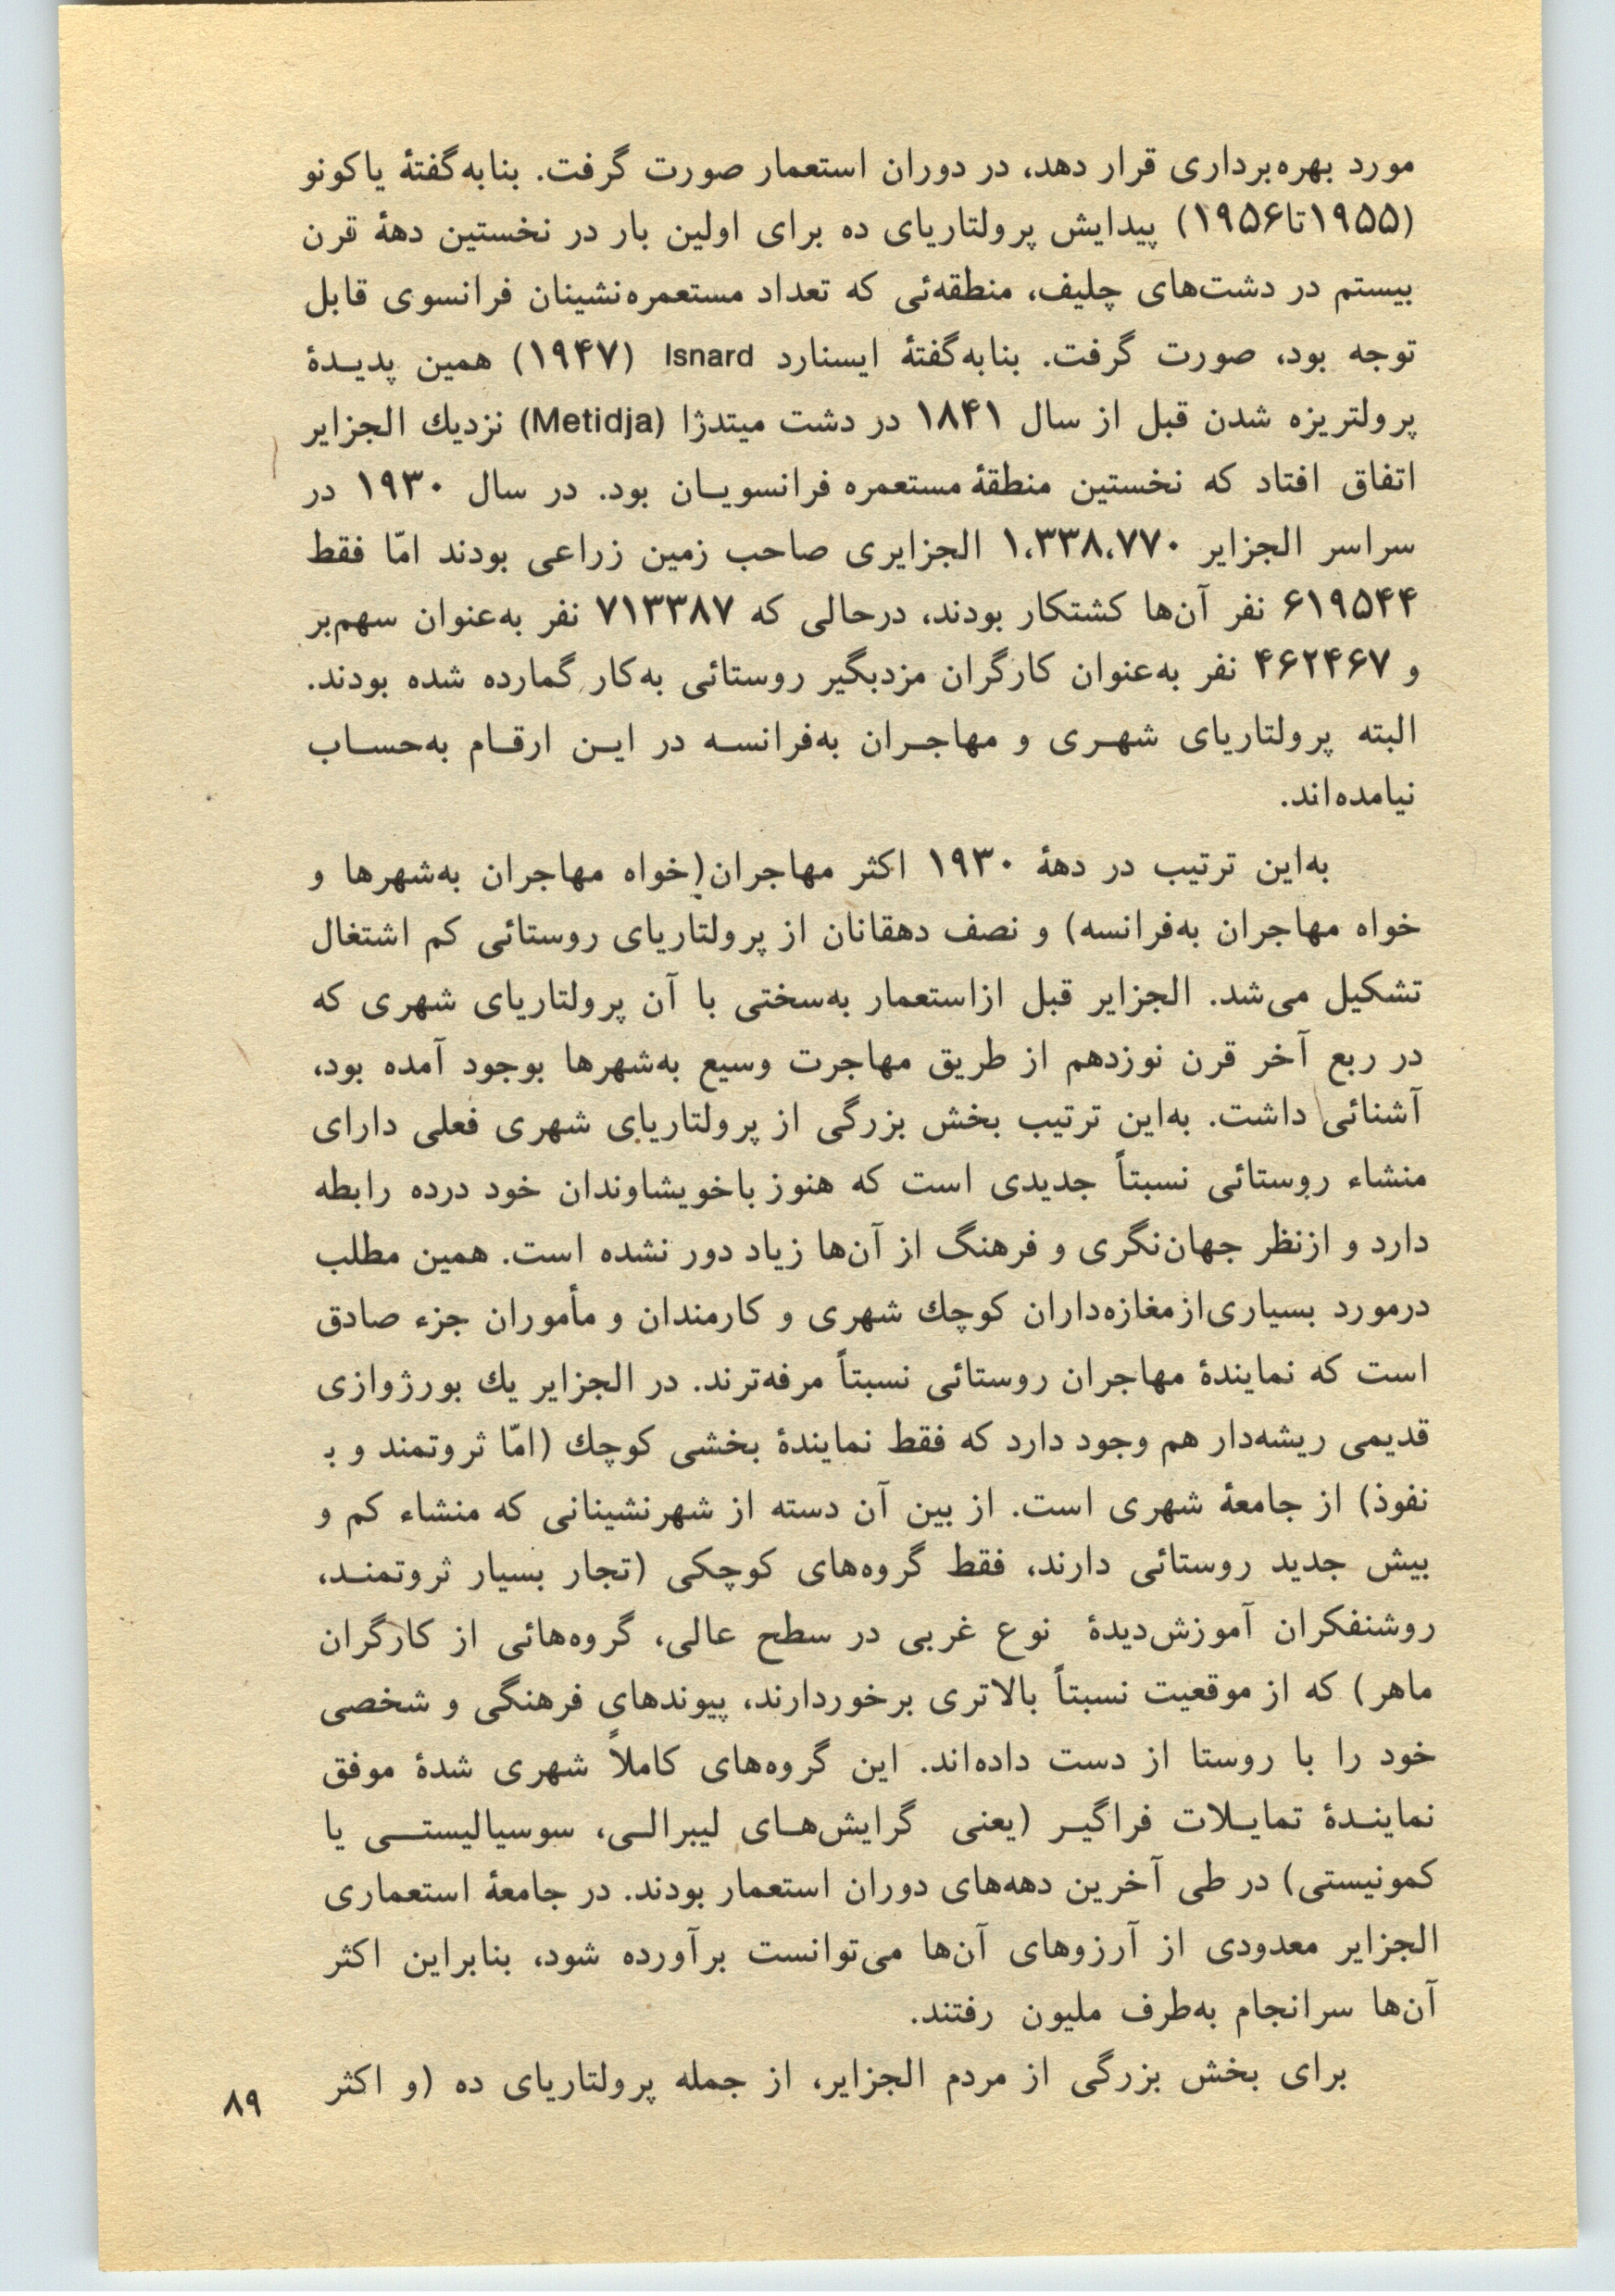 مورد بهره‌برداری قرار دهد، در دوران استعمار صورت گرفت. بنابه‌گفتهٔ یاکونو
(۱۹۵۵تا۱۹۵۶) پیدایش پرولتاریای ده برای اولین بار در نخستین دههٔ قرن
بیستم در دشت‌های چلیف، منطقه‌ئی که تعداد مستعمره‌نشینان فرانسوی قابل
توجه بود، صورت گرفت. بنابه‌گفتهٔ ایسنارد Isnard (۱۹۴۷) همین پدیـدهٔ
پرولتریزه شدن قبل از سال ۱۸۴۱ در دشت میتدژا (Metidja) نزدیك الجزایر
اتفاق افتاد که نخستین منطقهٔ مستعمره فرانسویـان بود. در سال ۱۹۳۰ در
سراسر الجزایر ۱،۳۳۸،۷۷۰ الجزایری صاحب زمین زراعی بودند امّا فقط
۶۱۹۵۴۴ نفر آن‌ها کشتکار بودند، درحالی که ۷۱۳۳۸۷ نفر به‌عنوان سهم‌بر
و ۴۶۲۴۶۷ نفر به‌عنوان کارگران مزدبگیر روستائی به‌کار گمارده شده بودند.
البته پرولتاریای شهـری و مهاجـران به‌فرانسـه در ایـن ارقـام به‌حسـاب
نیامده‌اند.
به‌این ترتیب در دههٔ ۱۹۳۰ اکثر مهاجران(خواه مهاجران به‌شهرها و
خواه مهاجران به‌فرانسه) و نصف دهقانان از پرولتاریای روستائی کم اشتغال
تشکیل می‌شد. الجزایر قبل ازاستعمار به‌سختی با آن پرولتاریای شهری که
در ربع آخر قرن نوزدهم از طریق مهاجرت وسیع به‌شهرها بوجود آمده بود،
آشنائی داشت. به‌این ترتیب بخش بزرگی از پرولتاریای شهری فعلی دارای
منشاء روستائی نسبتاً جدیدی است که هنوز باخویشاوندان خود درده رابطه
دارد و ازنظر جهان‌نگری و فرهنگ از آن‌ها زیاد دور نشده است. همین مطلب
درمورد بسیاری‌ازمغازه‌داران کوچك شهری و کارمندان و مأموران جزء صادق
است که نمایندهٔ مهاجران روستائی نسبتاً مرفه‌ترند. در الجزایر یك بورژوازی
قدیمی ریشه‌دار هم وجود دارد که فقط نمایندهٔ بخشی کوچك (امّا ثروتمند و بـ
نفوذ) از جامعهٔ شهری است. از بین آن دسته از شهرنشینانی که منشاء کم و
بیش جدید روستائی دارند، فقط گروه‌های کوچکی (تجار بسیار ثروتمنـد،
روشنفکران آموزش‌دیدهٔ نوع غربی در سطح عالی، گروه‌هائی از کارگران
ماهر) که از موقعیت نسبتاً بالاتری برخوردارند، پیوندهای فرهنگی و شخصی
خود را با روستا از دست داده‌اند. این گروه‌های کاملاً شهری شدهٔ موفق
نماینـدهٔ تمایـلات فراگیـر (یعنی گرایش‌هـای لیبرالـی، سوسیالیستــی یا
کمونیستی) در طی آخرین دهه‌های دوران استعمار بودند. در جامعهٔ استعماری
الجزایر معدودی از آرزوهای آن‌ها می‌توانست برآورده شود، بنابراین اکثر
آن‌ها سرانجام به‌طرف ملیون رفتند.
برای بخش بزرگی از مردم الجزایر، از جمله پرولتاریای ده (و اکثر
۸۹